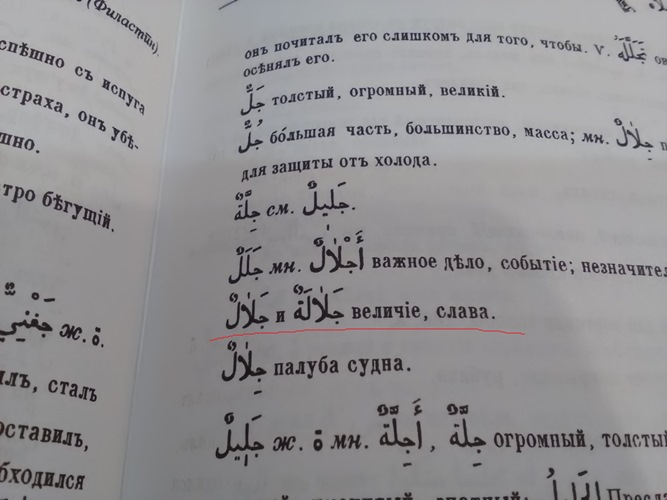 (Филастӣн).
спѣшно съ испуга
страха, онъ убѣ-
шно.
тро бѣгущій.
ж. ة.
илъ, сталъ
оставилъ,
бходился
онъ почиталъ его слишкомъ для того, чтобы. V. تَجَلَّلَهُ он
осѣнялъ его.
جَلٌّ толстый, огромный, великій.
جُلٌّ бо́льшая часть, большинство, масса; мн. جِلَالٌ п
для защиты отъ холода.
جِلَّةٌ см. جَلِيلٌ.
جَلَلٌ мн. أَجْلَالٌ важное дѣло, событіе; незначител
جَلَالٌ и جَلَالَةٌ величіе, слава.
جِلَالٌ палуба судна.
جَلِيلٌ ж. ة мн. أَجِلَّةٌ, جِلَّةٌ огромный, толстый